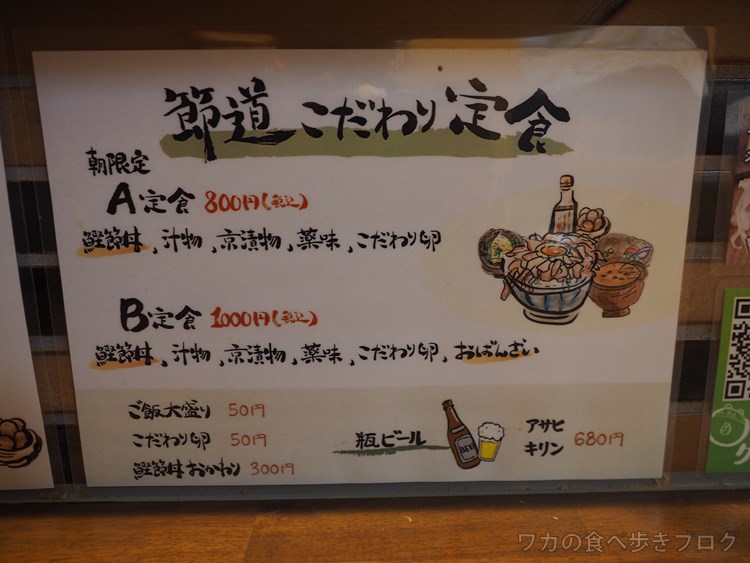 節道 こだわり定食
朝限定
A定食 800円(税込)
鰹節丼、汁物、京漬物、薬味、こだわり卵
B定食 1000円(税込)
鰹節丼、汁物、京漬物、薬味、こだわり卵、おばんざい
ご飯大盛り 50円
こだわり卵 50円
鰹節丼おかわり 300円
瓶ビール
BEER
アサヒ
キリン 680円
ワカの食べ歩きブログ